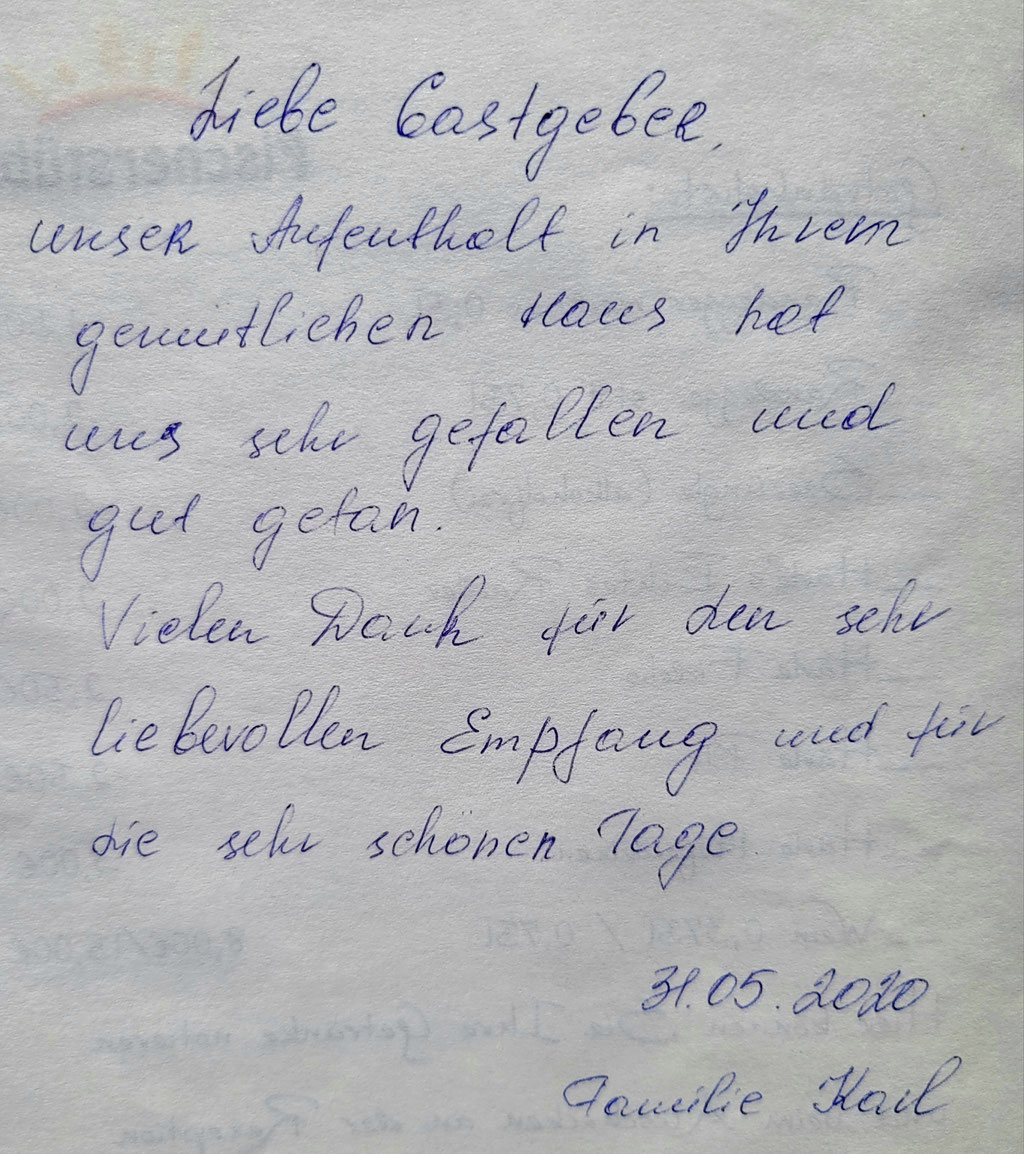 Liebe Gastgeber,
unser Aufenthalt in Ihrem
gemütlichen Haus hat
uns sehr gefallen und
gut getan.
Vielen Dank für den sehr
liebevollen Empfang und für
die sehr schönen Tage.
31.05.2020
Familie Karl